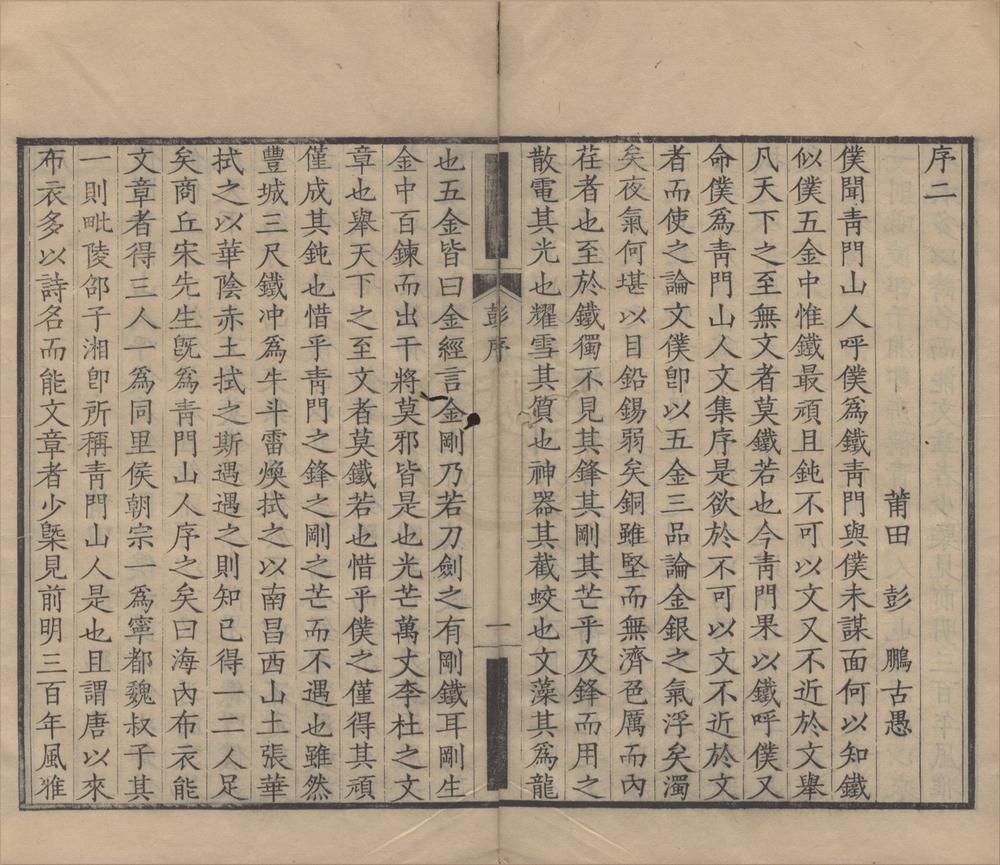 序二
莆田 彭 鵬古愚
僕聞靑門山人呼僕爲鐵靑門與僕未謀面何以知鐵
似僕五金中惟鐵最頑且鈍不可以文又不近於文舉
凡天下之至無文者莫鐵若也今靑門果以鐵呼僕又
命僕爲靑門山人文集序是欲於不可以文不近於文
者而使之論文僕卽以五金三品論金銀之氣浮矣濁
矣夜氣何堪以目鉛錫弱矣銅雖堅而無濟色厲而內
荏者也至於鐵獨不見其鋒其剛其芒乎及鋒而用之
散電其光也耀雪其質也神器其截蛟也文藻其爲龍
彭序
一
也五金皆曰金經言金剛乃若刀劍之有剛鐵耳剛生
金中百鍊而出干將莫邪皆是也光芒萬丈李杜之文
章也舉天下之至文者莫鐵若也惜乎僕之僅得其頑
僅成其鈍也惜乎靑門之鋒之剛之芒而不遇也雖然
豐城三尺鐵冲爲牛斗雷煥拭之以南昌西山土張華
拭之以華陰赤土拭之斯遇遇之則知已得一二人足
矣商丘宋先生旣爲靑門山人序之矣曰海內布衣能
文章者得三人一爲同里侯朝宗一爲寧都魏叔子其
一則毗陵邵子湘卽所稱靑門山人是也且謂唐以來
布衣多以詩名而能文章者少槩見前明三百年風雅